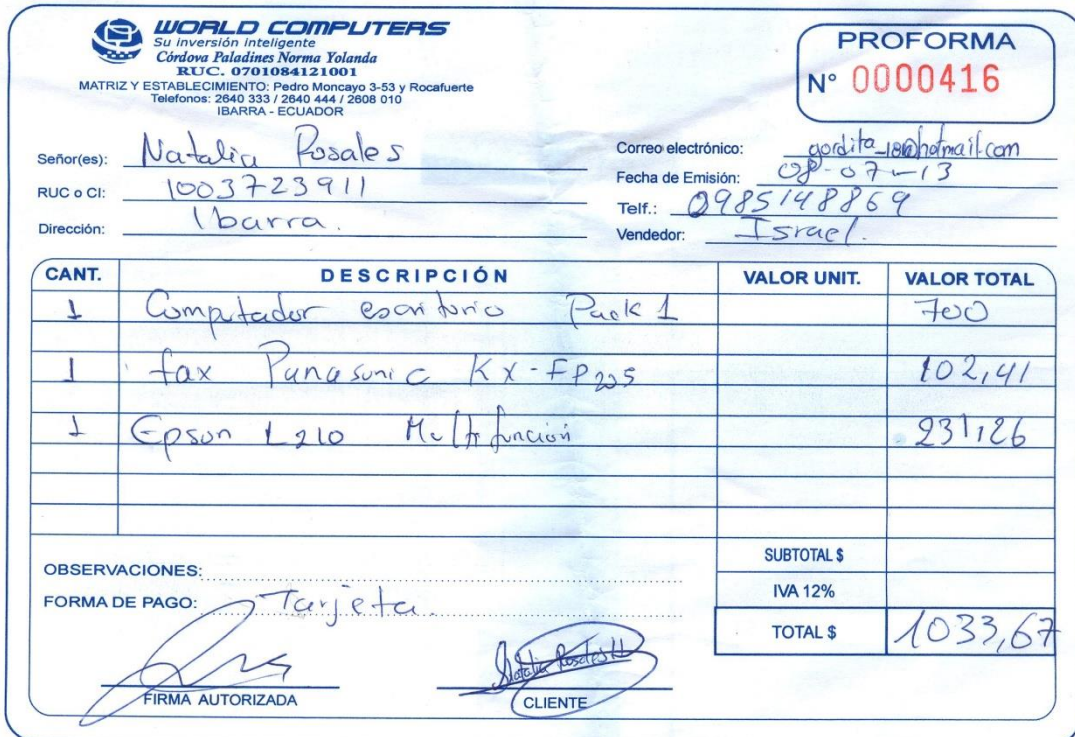 WORLD COMPUTERS
Su inversión inteligente
Córdova Paladines Norma Yolanda
RUC. 0701084121001
MATRIZ Y ESTABLECIMIENTO: Pedro Moncayo 3-53 y Rocafuerte
Telefonos: 2640 333 / 2640 444 / 2608 010
IBARRA - ECUADOR
PROFORMA
N° 0000416
Señor(es): Natalia Rosales
RUC o CI: 1003723911
Dirección: Ibarra.
Correo electrónico: @hotmail.com
Fecha de Emisión: 08-07-13
Telf.: 0985148869
Vendedor: Israel.
CANT. DESCRIPCIÓN VALOR UNIT. VALOR TOTAL
1 Computador escritorio Pack 1 700
1 fax Panasonic KX-FP205 102,41
1 Epson L210 Multifunción 231,26
OBSERVACIONES:
FORMA DE PAGO: Tarjeta.
SUBTOTAL $
IVA 12%
TOTAL $ 1033,67
Natalia Rosales
FIRMA AUTORIZADA
CLIENTE